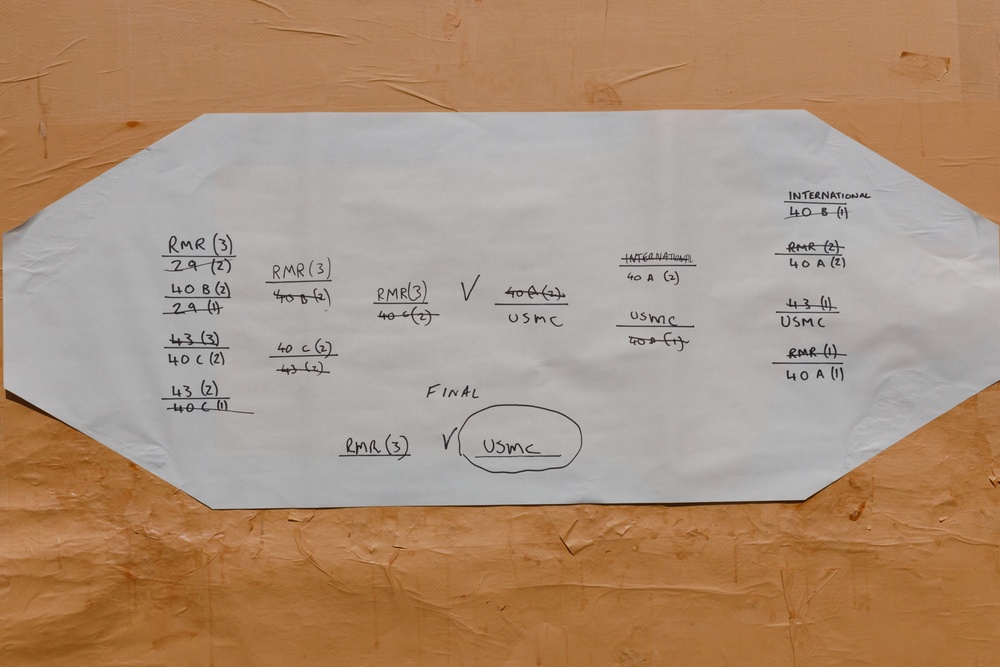 RMR (3)
29 (2)
40 B (2)
29 (1)
43 (3)
40 C (2)
43 (2)
40 C (1)
RMR (3)
40 B (2)
40 C (2)
43 (2)
RMR (3)
40 C (2)
V
40 A (2)
USMC
INTERNATIONAL
40 A (2)
USMC
40 A (1)
INTERNATIONAL
40 B (1)
RMR (2)
40 A (2)
43 (1)
USMC
RMR (1)
40 A (1)
FINAL
RMR (3) V USMC